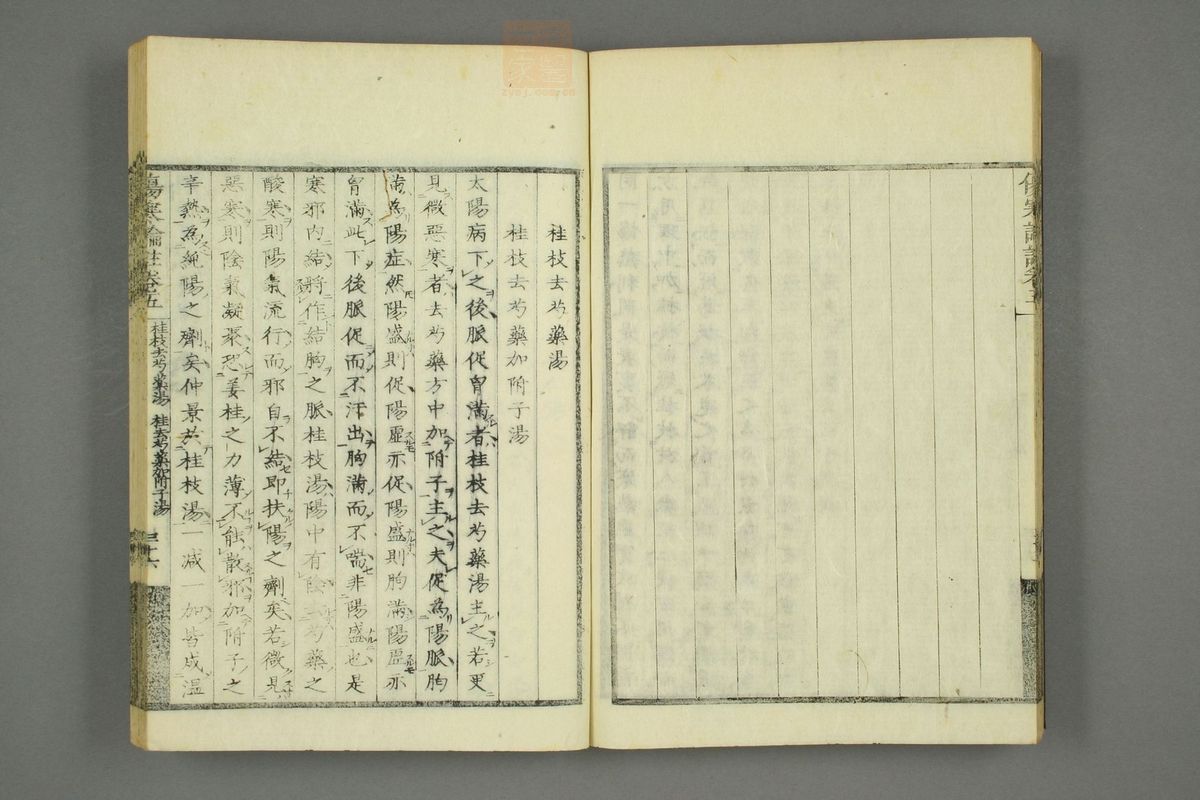 桂枝去芍藥湯
桂枝去芍藥加附子湯
太陽病下之後脈促胷滿者桂枝去芍藥湯主之若更
見微惡寒者去芍藥方中加附子主之夫促為陽脈胸
滿為陽症然陽盛則促陽虛亦促陽盛則胸滿陽虛亦
胷滿此下後脈促而不汗出胸滿而不喘非陽盛也是
寒邪內結將作結胸之脈桂枝湯陽中有陰去芍藥之
酸寒則陽氣流行而邪自不結即扶陽之劑矣若微見
惡寒則陰氣凝聚恐姜桂之力薄不能散邪加附子之
辛熱為純陽之劑矣仲景於桂枝湯一減一加皆成溫
傷寒論註卷五
桂枝去芍藥湯 桂去芍藥加附子湯
zysj.com.cn